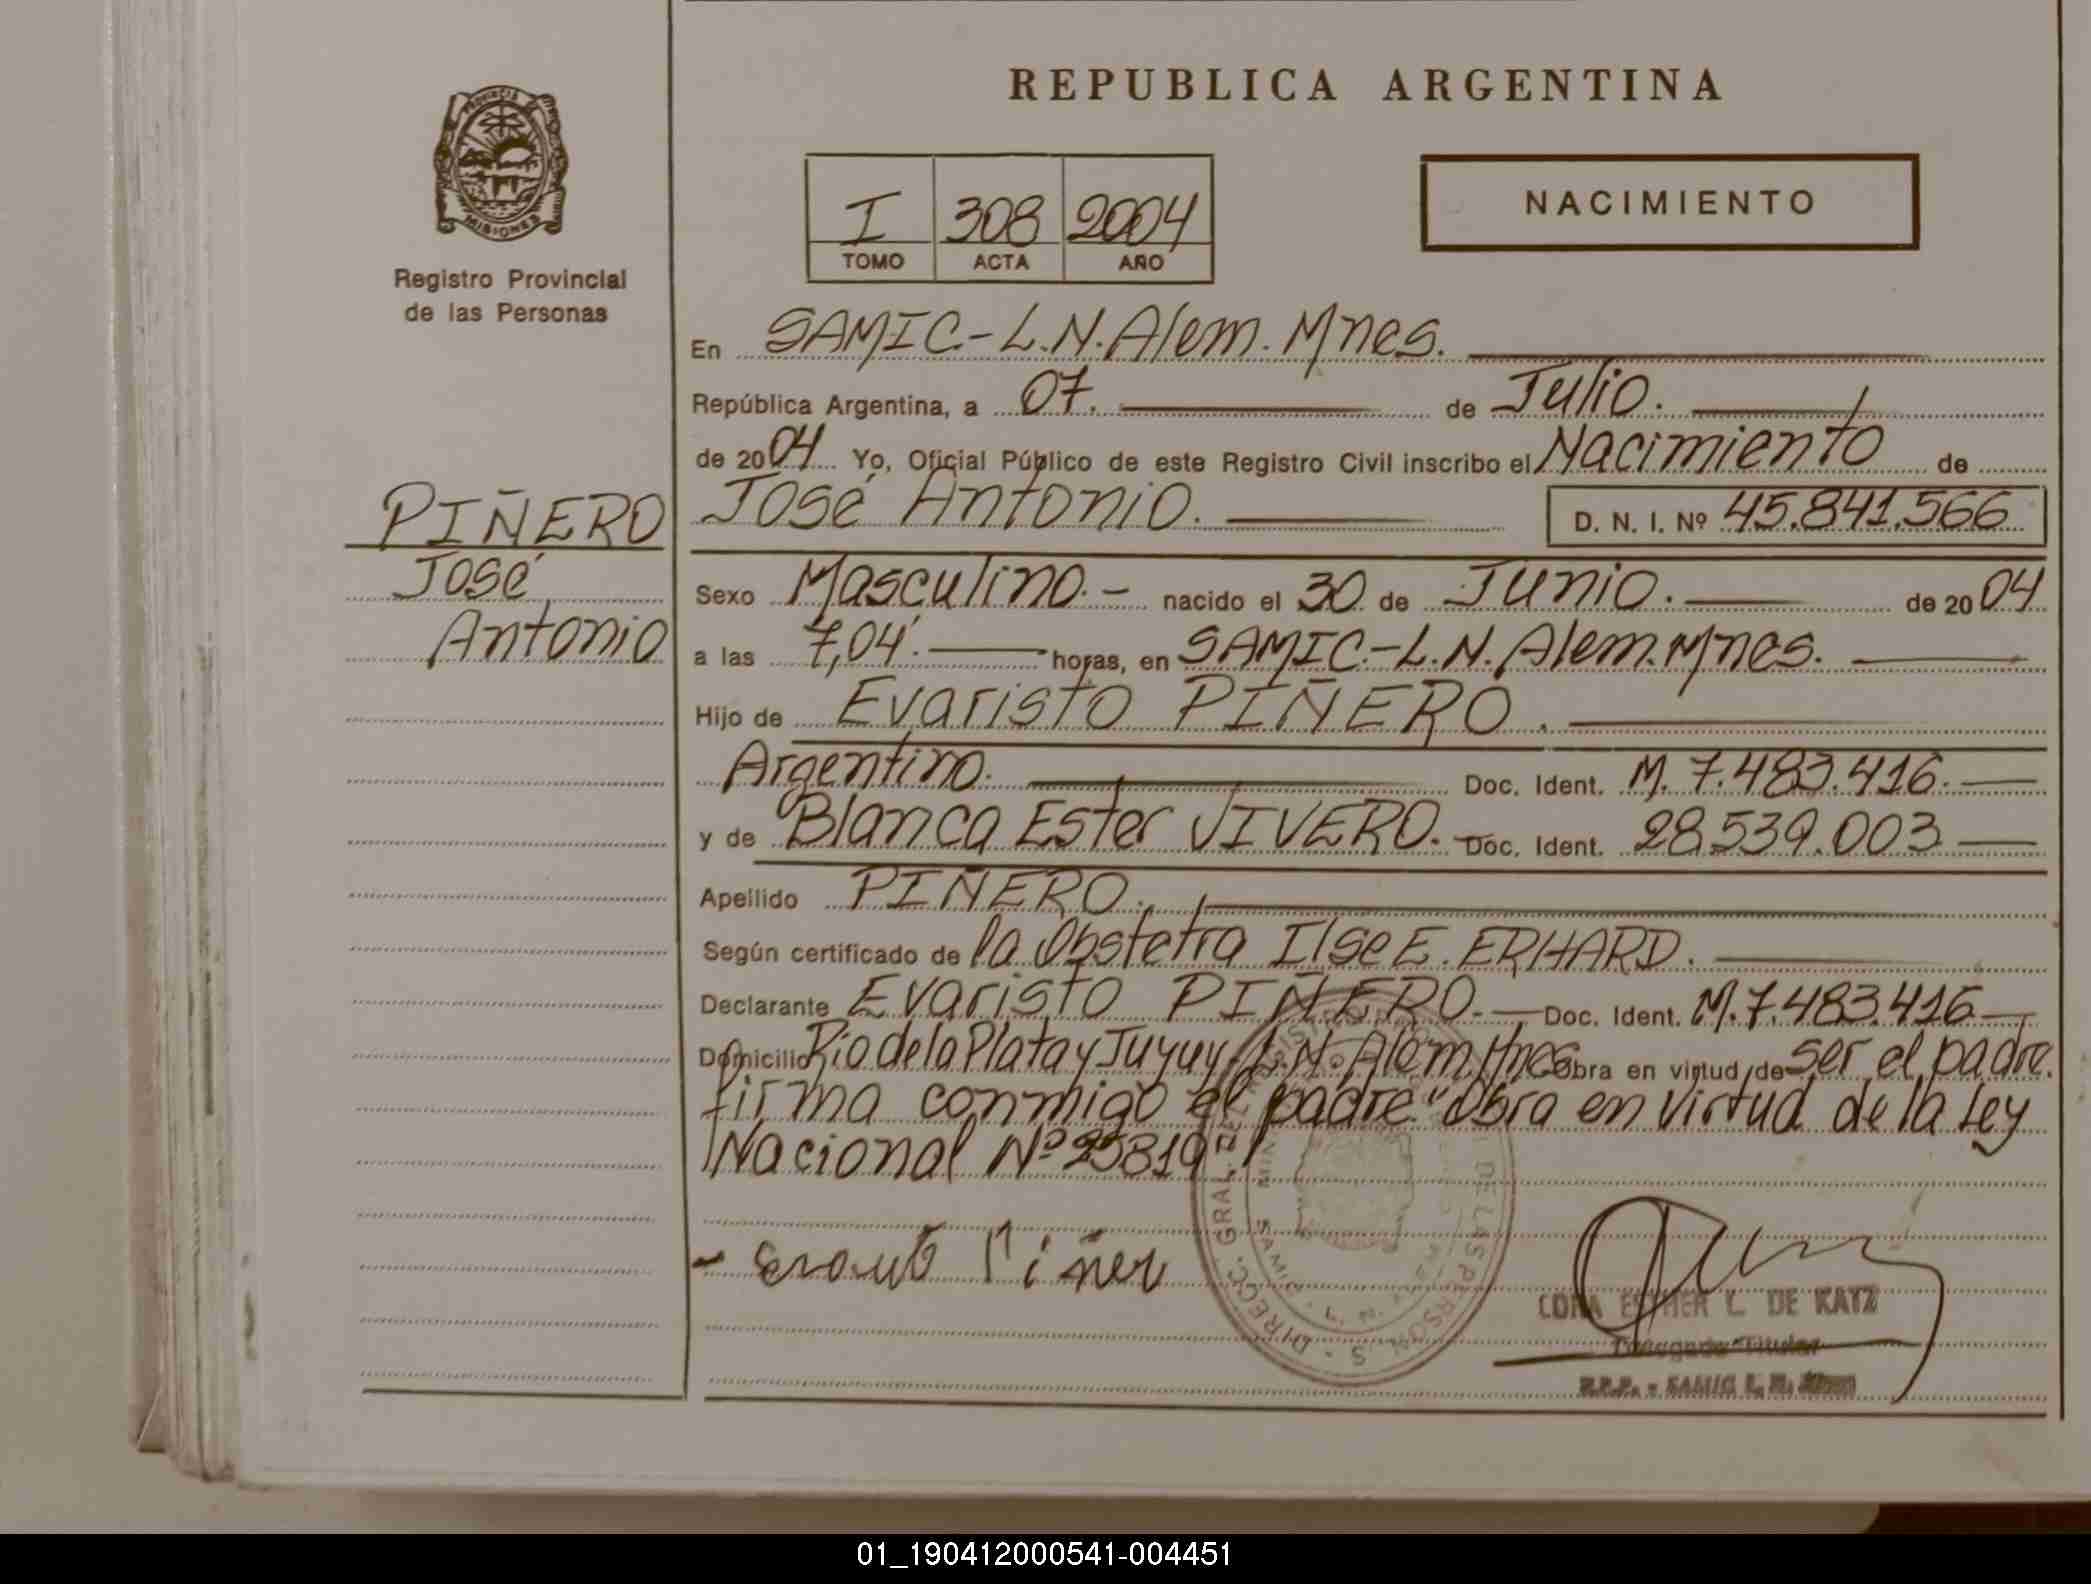 PROVINCIA DE
MISIONES
Registro Provincial
de las Personas
PIÑERO
José
Antonio
REPUBLICA ARGENTINA
I 308 2004
TOMO ACTA AÑO
NACIMIENTO
En SAMIC-L.N.Alem.Mnes.
República Argentina, a 07. de Julio.
de 2004 Yo, Oficial Público de este Registro Civil inscribo el Nacimiento de
José Antonio. D. N. I. Nº 45.841.566
Sexo Masculino.- nacido el 30 de Junio. de 2004
a las 7,04'. horas, en SAMIC.-L.N.Alem.Mnes.
Hijo de Evaristo PIÑERO.
Argentino. Doc. Ident. M. 7.483.416.
y de Blanca Ester VIVERO. Doc. Ident. 28.539.003
Apellido PIÑERO.
Según certificado de la Obstetra Ilse E. ERHARD.
Declarante Evaristo PIÑERO. Doc. Ident. M.7.483.416
Domicilio Rio de la Plata y Jujuy-L.N.Alem.Mnes Obra en virtud de ser el padre.
firma conmigo el padre "Obra en virtud de la Ley
Nacional Nº 25819"
DIRECC. GRAL. DEL REGISTRO DE LAS PERSONAS
CORA ESTHER L. DE KATZ
Delegada Titular
R.P.P. - SAMIC L. N. Alem
01_190412000541-004451